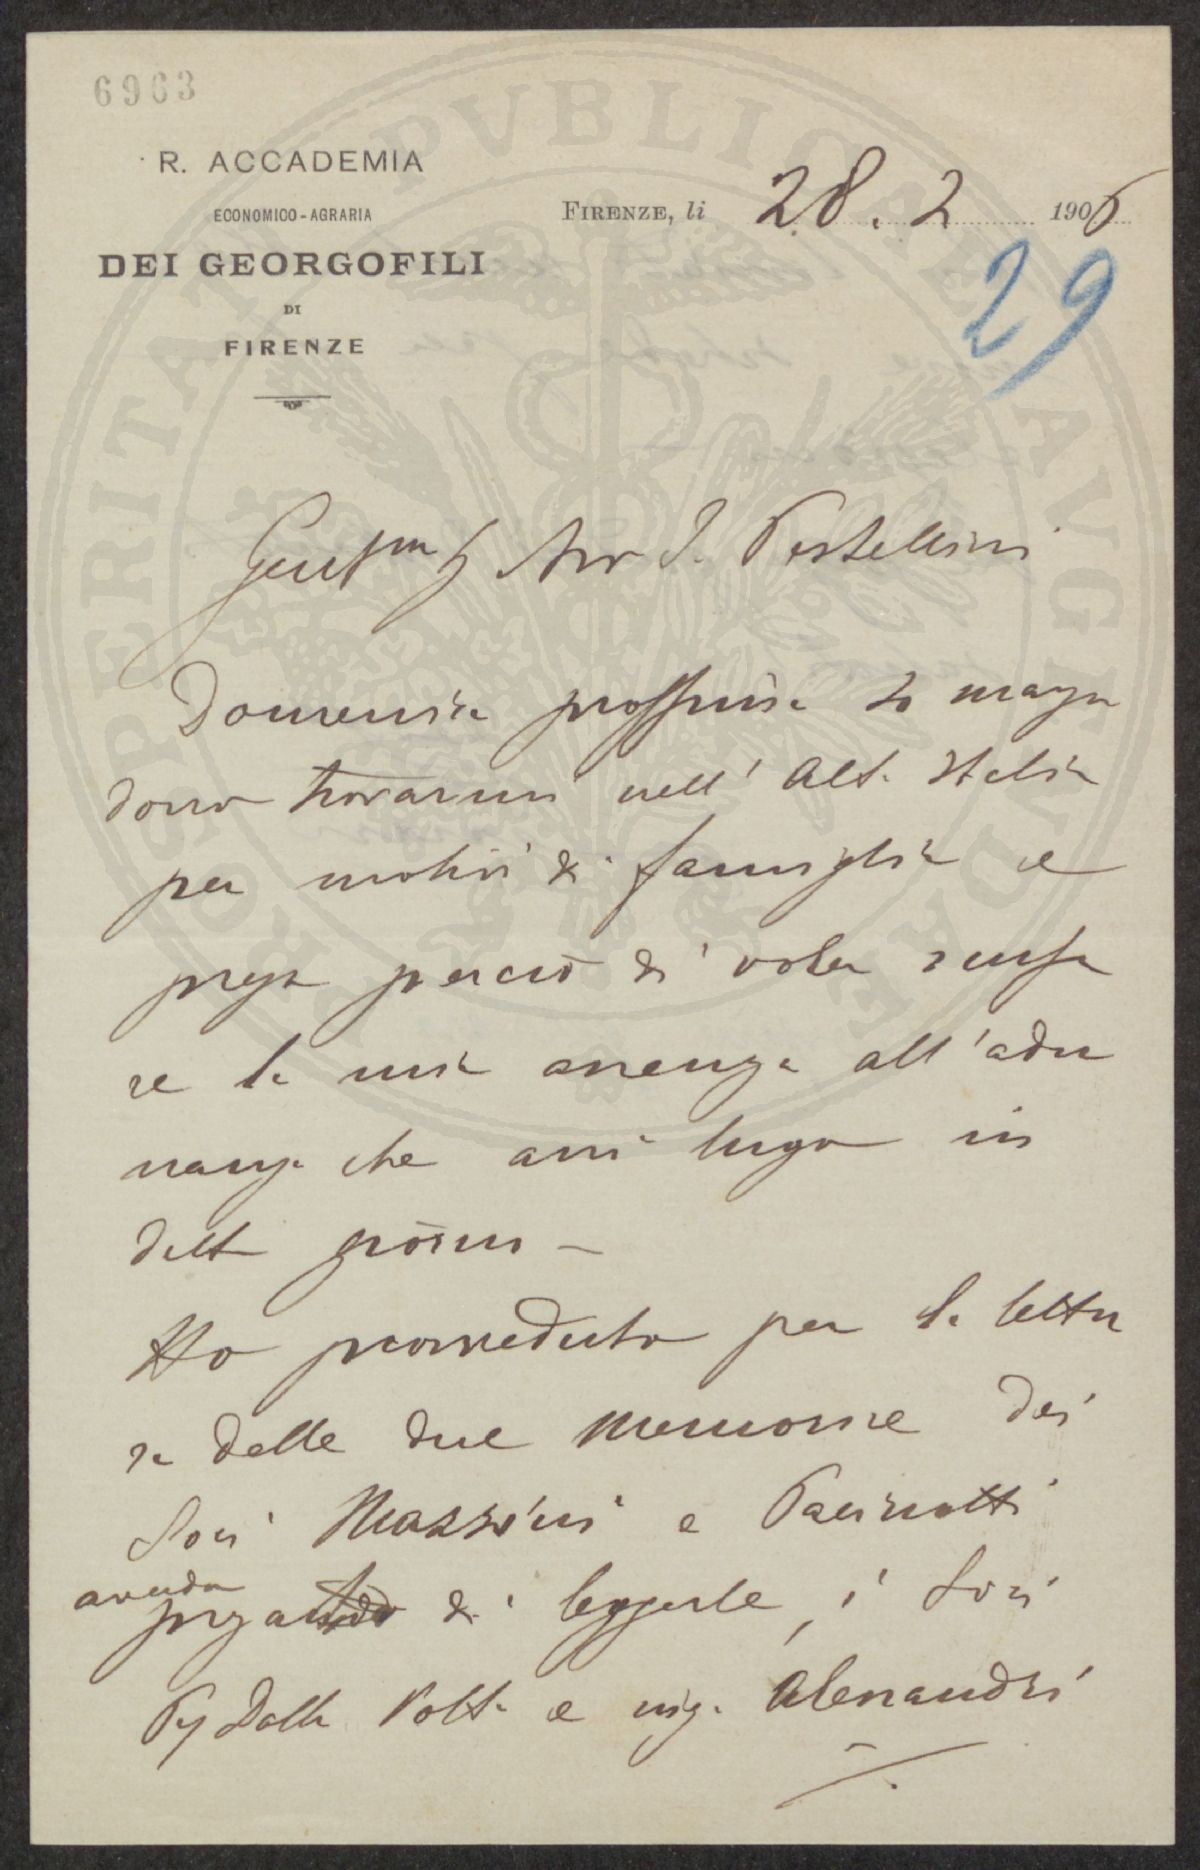 6963
R. ACCADEMIA
ECONOMICO-AGRARIA
DEI GEORGOFILI
DI
FIRENZE
FIRENZE, li 28. 2 1906
29
PROSPERITATI PVBLICAE AVGENDAE
Gentmo Avv I. Pestellini
Domenica prossima 4 marzo
dovrò trovarmi nell'Alta Italia
per motivi di famiglia e
prego perciò di voler scusa
re la mia assenza all'adu
nanza che avrà luogo in
detto giorno –
Ho provveduto per la lettu
ra delle due memorie dei
Soci Mazzini e Pacinotti
avendo
pregato di leggerle, i Soci
Dalla Volta e ing. Alessandri